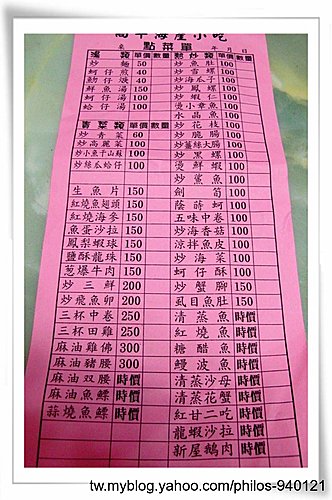 點菜單
年 月 日
類 單價 數量
炒麵 50
蚵仔煎 40
魚湯 150
蚵仔湯 100
蛤仔湯 100
青菜類 單價 數量
炒青菜 60
炒高麗菜 100
炒小魚干山蘇 100
炒絲瓜蛤仔 100
生魚片 150
紅燒魚翅頭 150
紅燒海參 150
魚蛋沙拉 150
鳳梨蝦球 150
鹽酥龍珠 150
葱爆牛肉 150
炒三鮮 200
炒飛魚卵 200
三杯中卷 250
三杯田雞 250
麻油雞佛 300
麻油豬腰 300
麻油双腰 時價
麻油魚鰾 時價
蒜燒魚鰾 時價
熱炒類 單價 數量
炒魚肚 100
炒雪螺 100
炒海瓜子 100
炒鳳螺 100
炒蝦仁 100
燙小章魚 100
水晶魚 100
炒花枝 100
炒脆腸 100
炒薑絲大腸 100
炒黑螺 100
燙鮮蝦 100
炒鯊魚 100
劍筍 100
蔭蒔蚵 100
五味中卷 100
炒海香菇 100
涼拌魚皮 100
炒海菜 100
蚵仔酥 100
炒蟹腳 150
虱目魚肚 150
清蒸魚 時價
紅燒魚 時價
糖醋魚 時價
鰻波魚 時價
清蒸沙母 時價
清蒸花蟹 時價
紅甘二吃 時價
龍蝦沙拉 時價
新屋鵝肉 時價
tw.myblog.yahoo.com/philos-940121